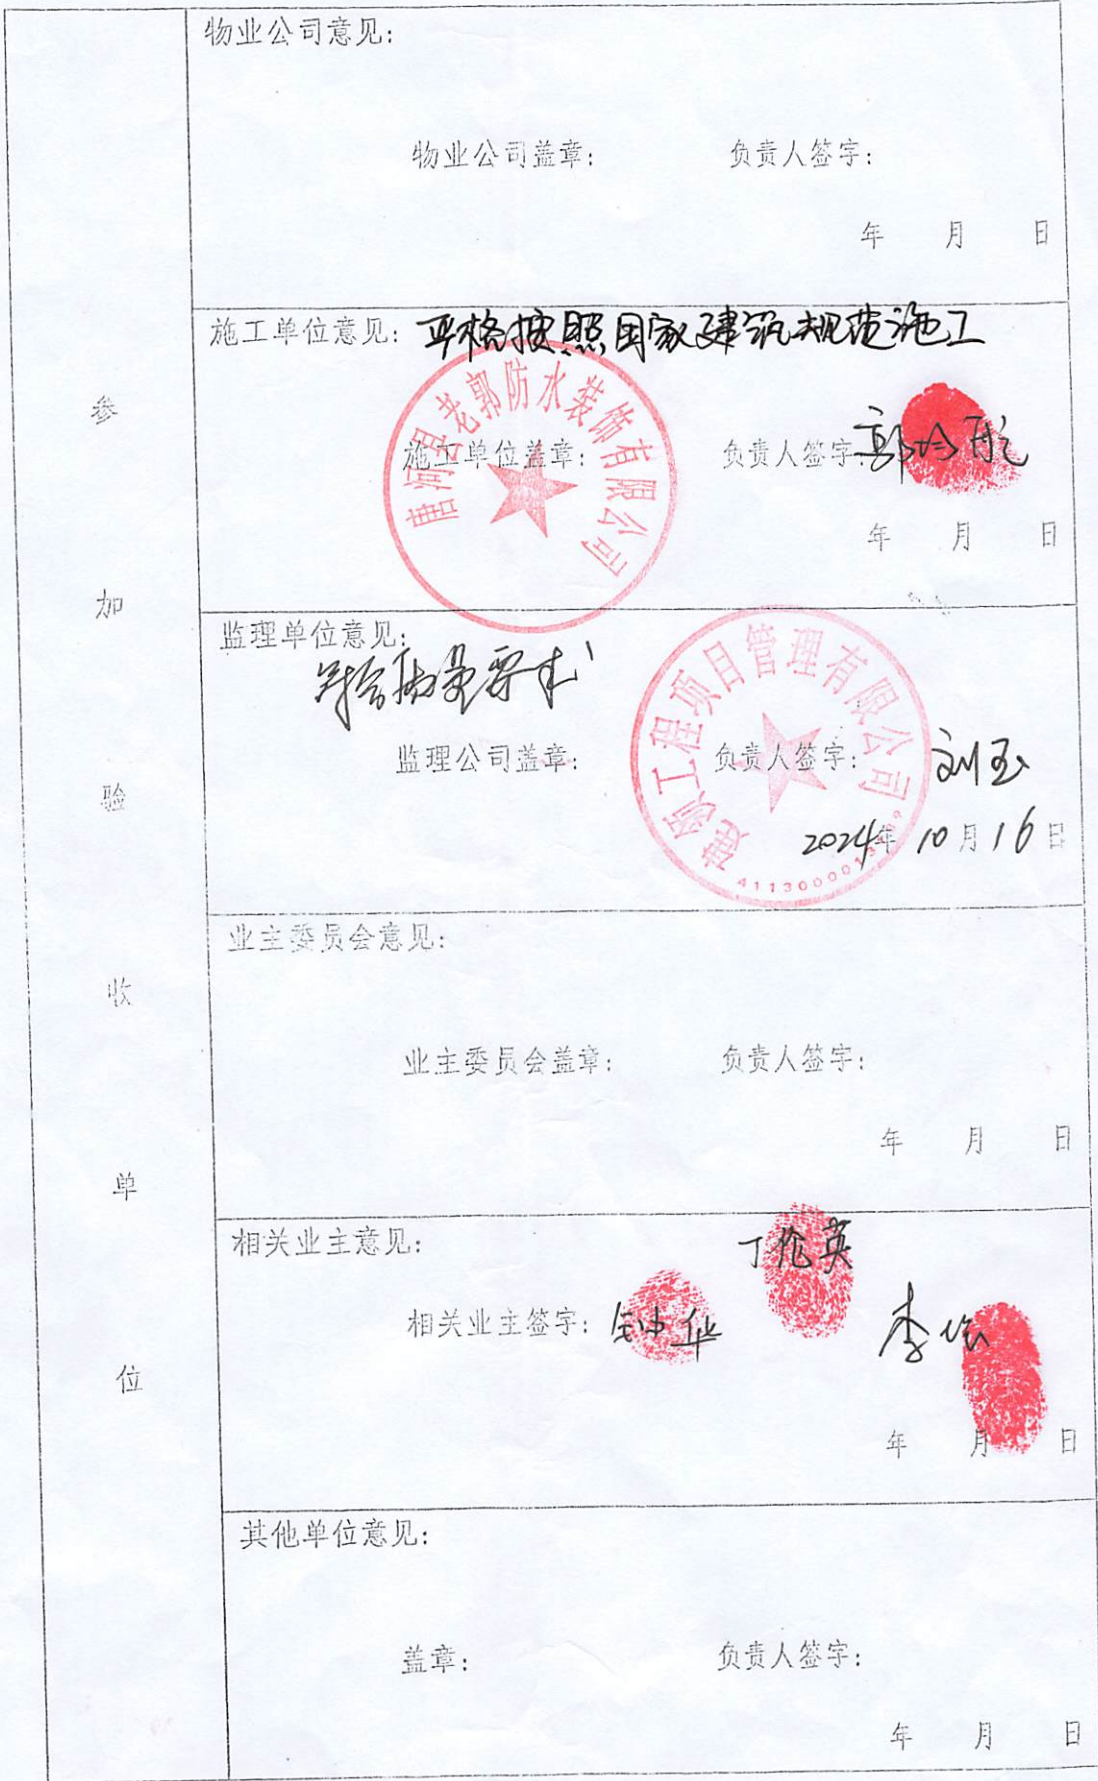 参加验收单位
物业公司意见：
物业公司盖章： 负责人签字：
年 月 日
施工单位意见：严格按照国家建筑规范施工
唐河县老郭防水装饰有限公司
施工单位盖章： 负责人签字：
年 月 日
监理单位意见：
符合质量要求
建领工程项目管理有限公司
监理公司盖章： 负责人签字： 刘玉
2024年10月16日
业主委员会意见：
业主委员会盖章： 负责人签字：
年 月 日
相关业主意见：
丁伦英
相关业主签字： 华 李
年 月 日
其他单位意见：
盖章： 负责人签字：
年 月 日